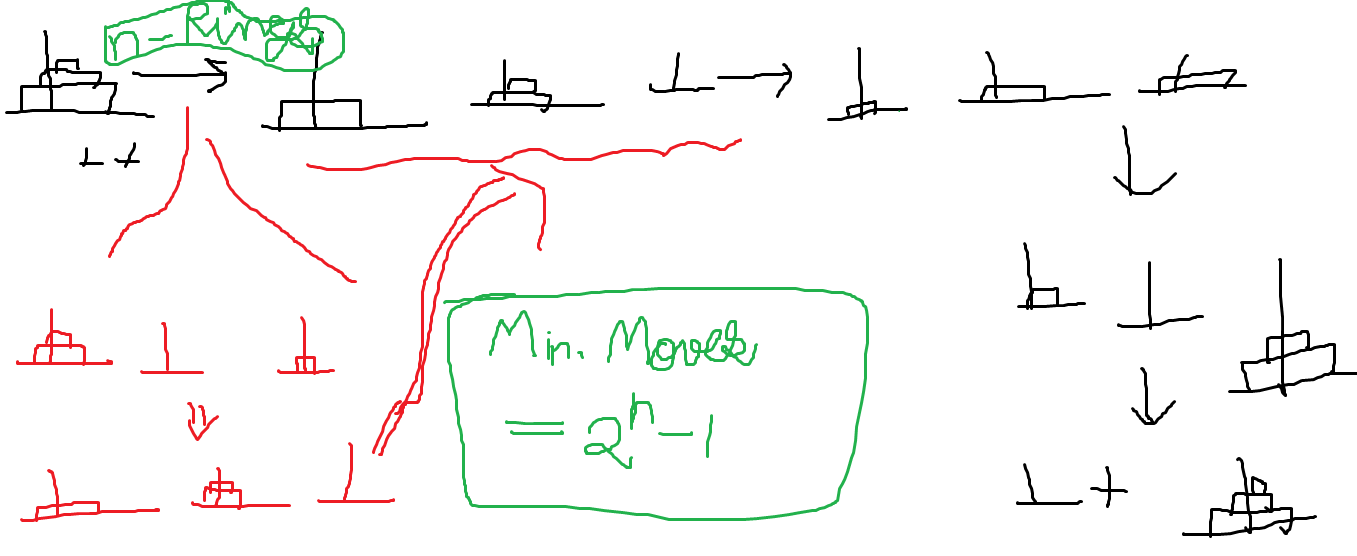 n - Rings
Min. Moves
= 2^n - 1